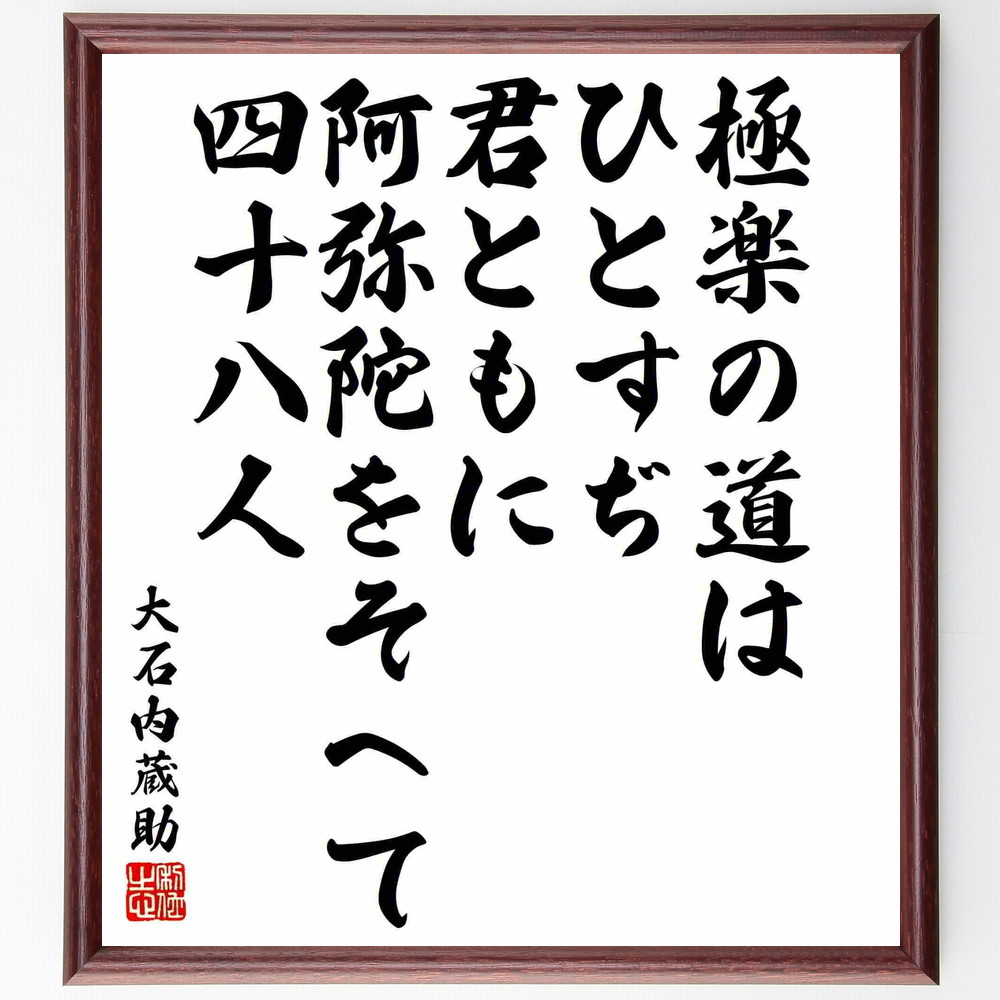 極楽の道は
ひとすぢ
君ともに
阿弥陀をそへて
四十八人
大石内蔵助